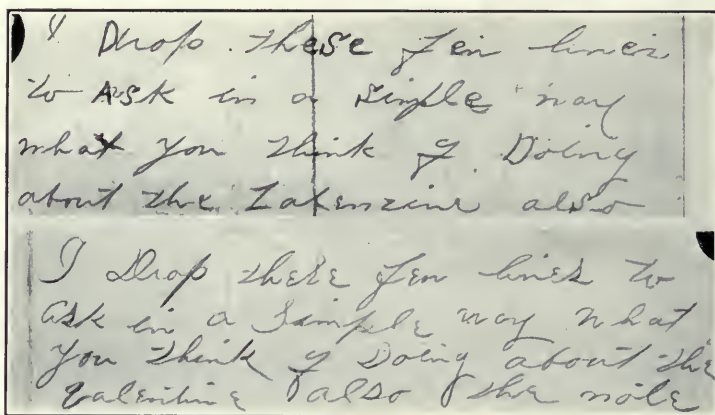 I Drop these few lines
to Ask in a simple way
what you think of Doing
about the also
I Drop these few lines to
ask in a Simple way what
you think of Doing about the
Valentine also the note